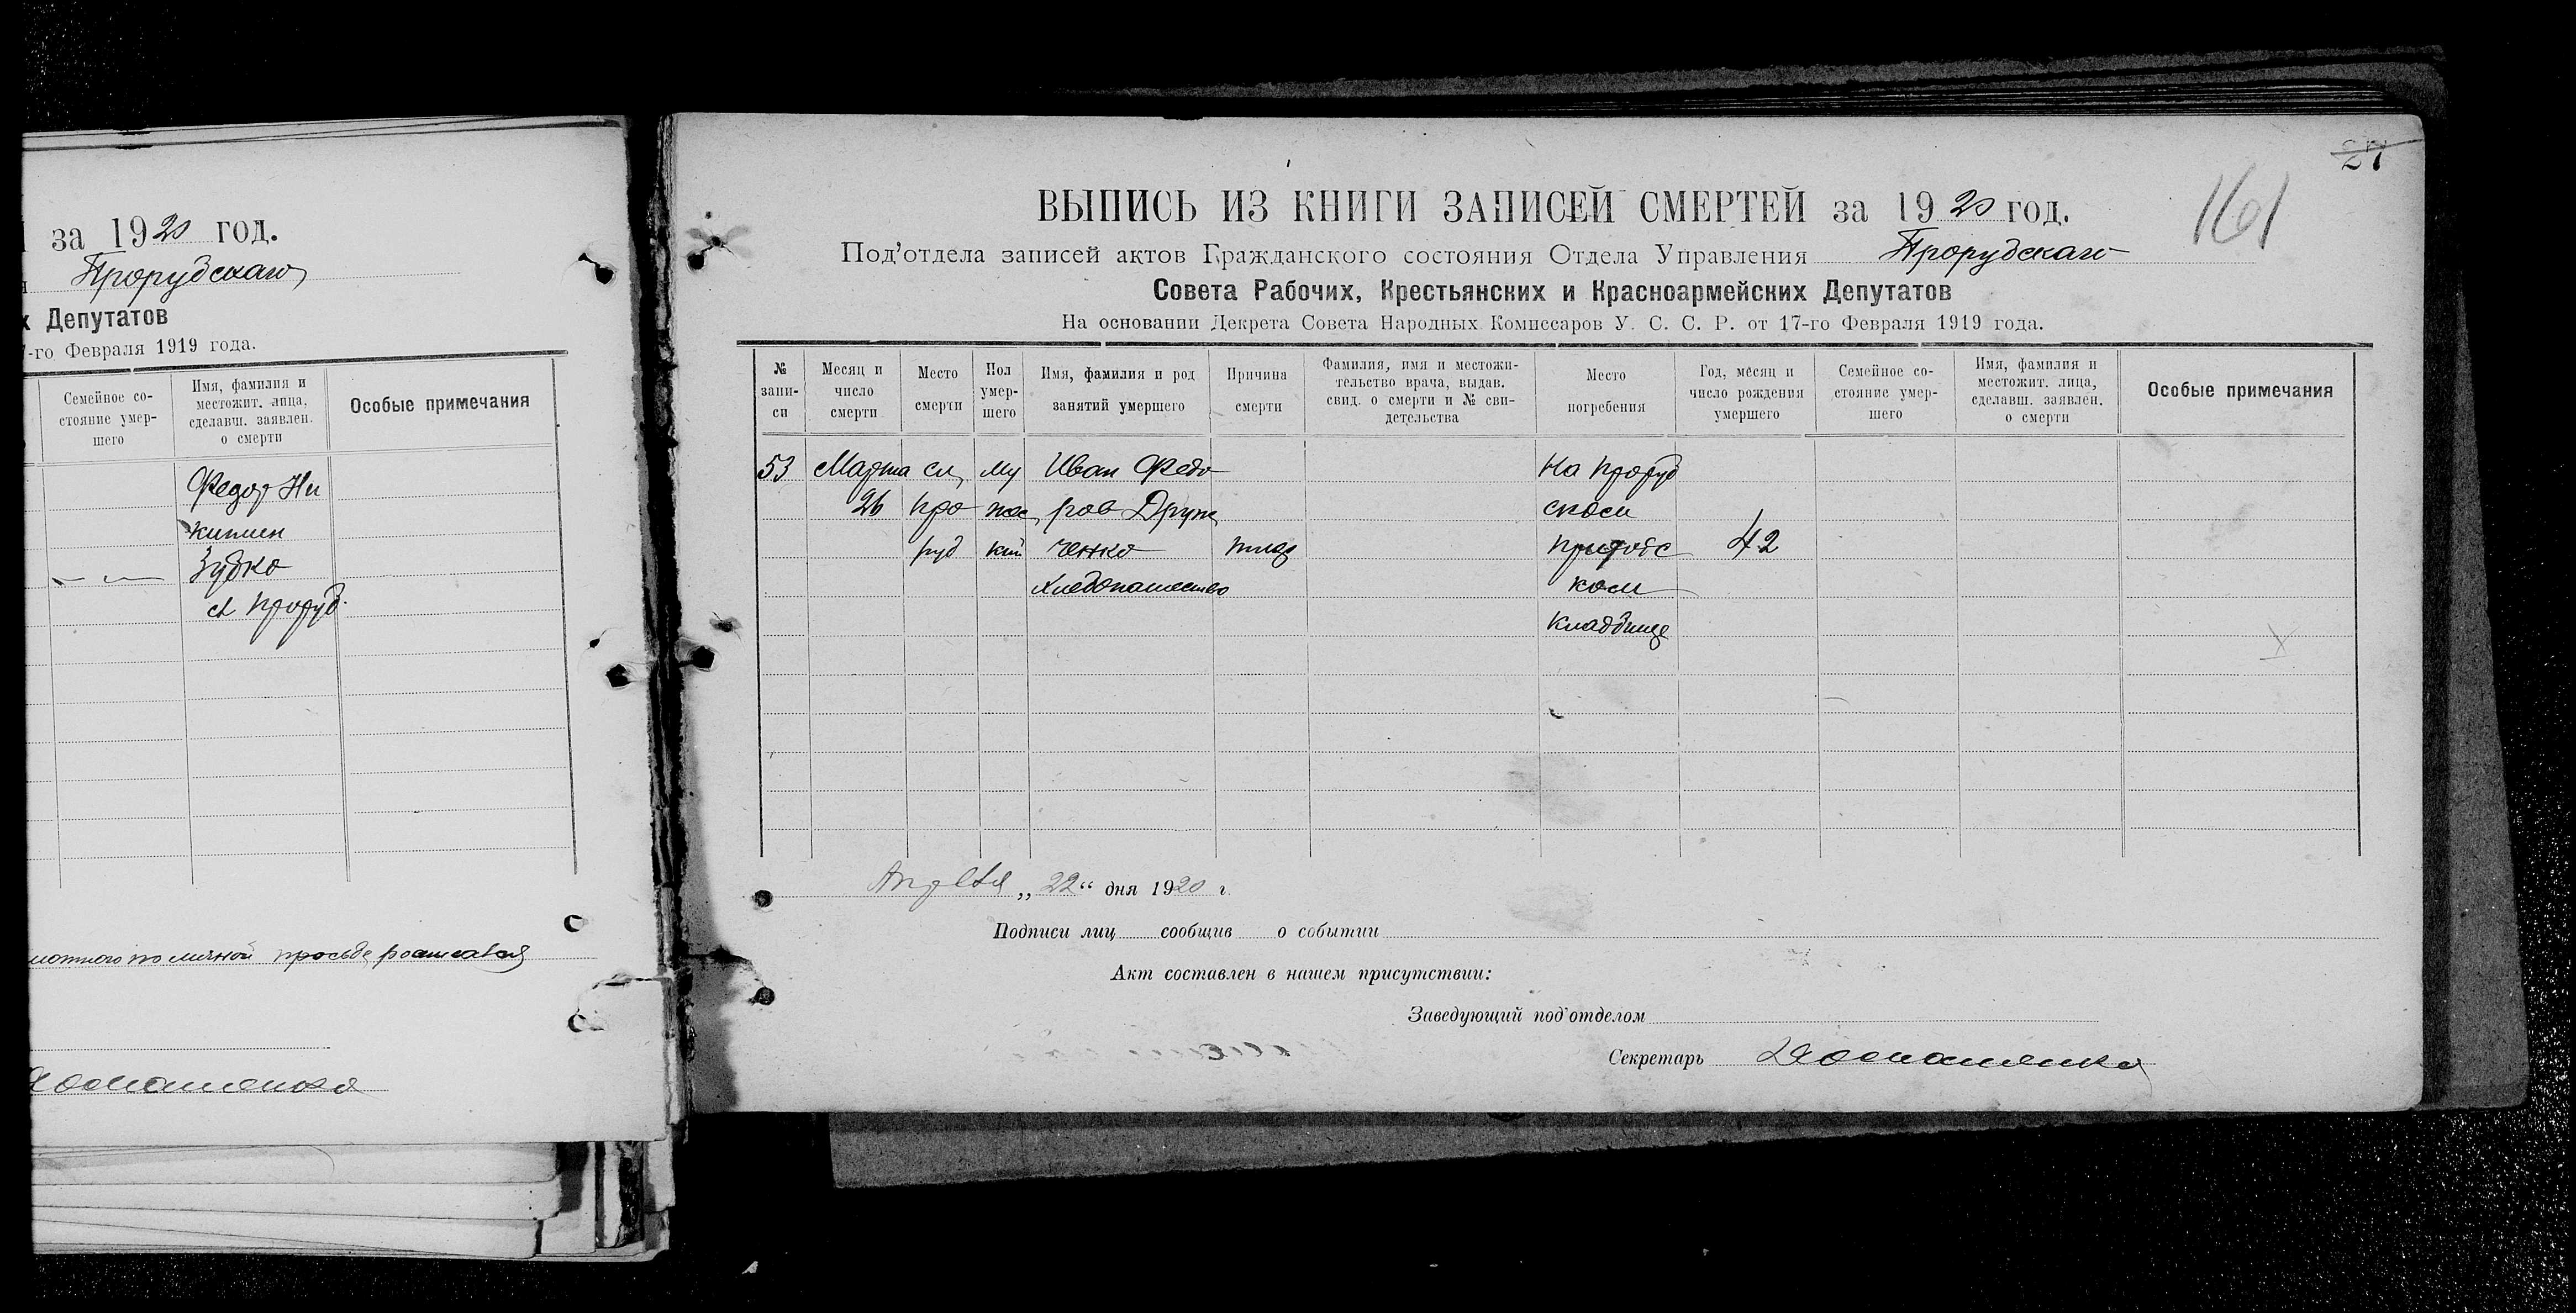 за 1920 год.
Прорудскаго
х Депутатов
7-го Февраля 1919 года.
Семейное со-
стояние умер-
шего
Имя, фамилия и
местожит. лица,
сделавш. заявлен.
о смерти
Особые примечания
Федор Ни
китин
Зубко
сл Проруб.
по личной просьбе
27
161
ВЫПИСЬ ИЗ КНИГИ ЗАПИСЕЙ СМЕРТЕЙ за 1920 год.
Под'отдела записей актов Гражданского состояния Отдела Управления Прорудскаго
Совета Рабочих, Крестьянских и Красноармейских Депутатов
На основании Декрета Совета Народных Комиссаров У. С. С. Р. от 17-го Февраля 1919 года.
№
запи-
си
Месяц и
число
смерти
Место
смерти
Пол
умер-
шего
Имя, фамилия и род
занятий умершего
Причина
смерти
Фамилия, имя и местожи-
тельство врача, выдав.
свид. о смерти и № сви-
детельства
Место
погребения
Год, месяц и
число рождения
умершего
Семейное со-
стояние умер-
шего
Имя, фамилия и
местожит. лица,
сделавш. заявлен.
о смерти
Особые примечания
53 Марта сл, му Иван Федо На Проруд
26 про жес ров Друж ском
руд кий ченко тиф 42
хлебопашество ком
кладбище
Апреля „22“ дня 1920 г.
Подписи лиц сообщив о событии
Акт составлен в нашем присутствии:
Заведующий под'отделом
Секретарь